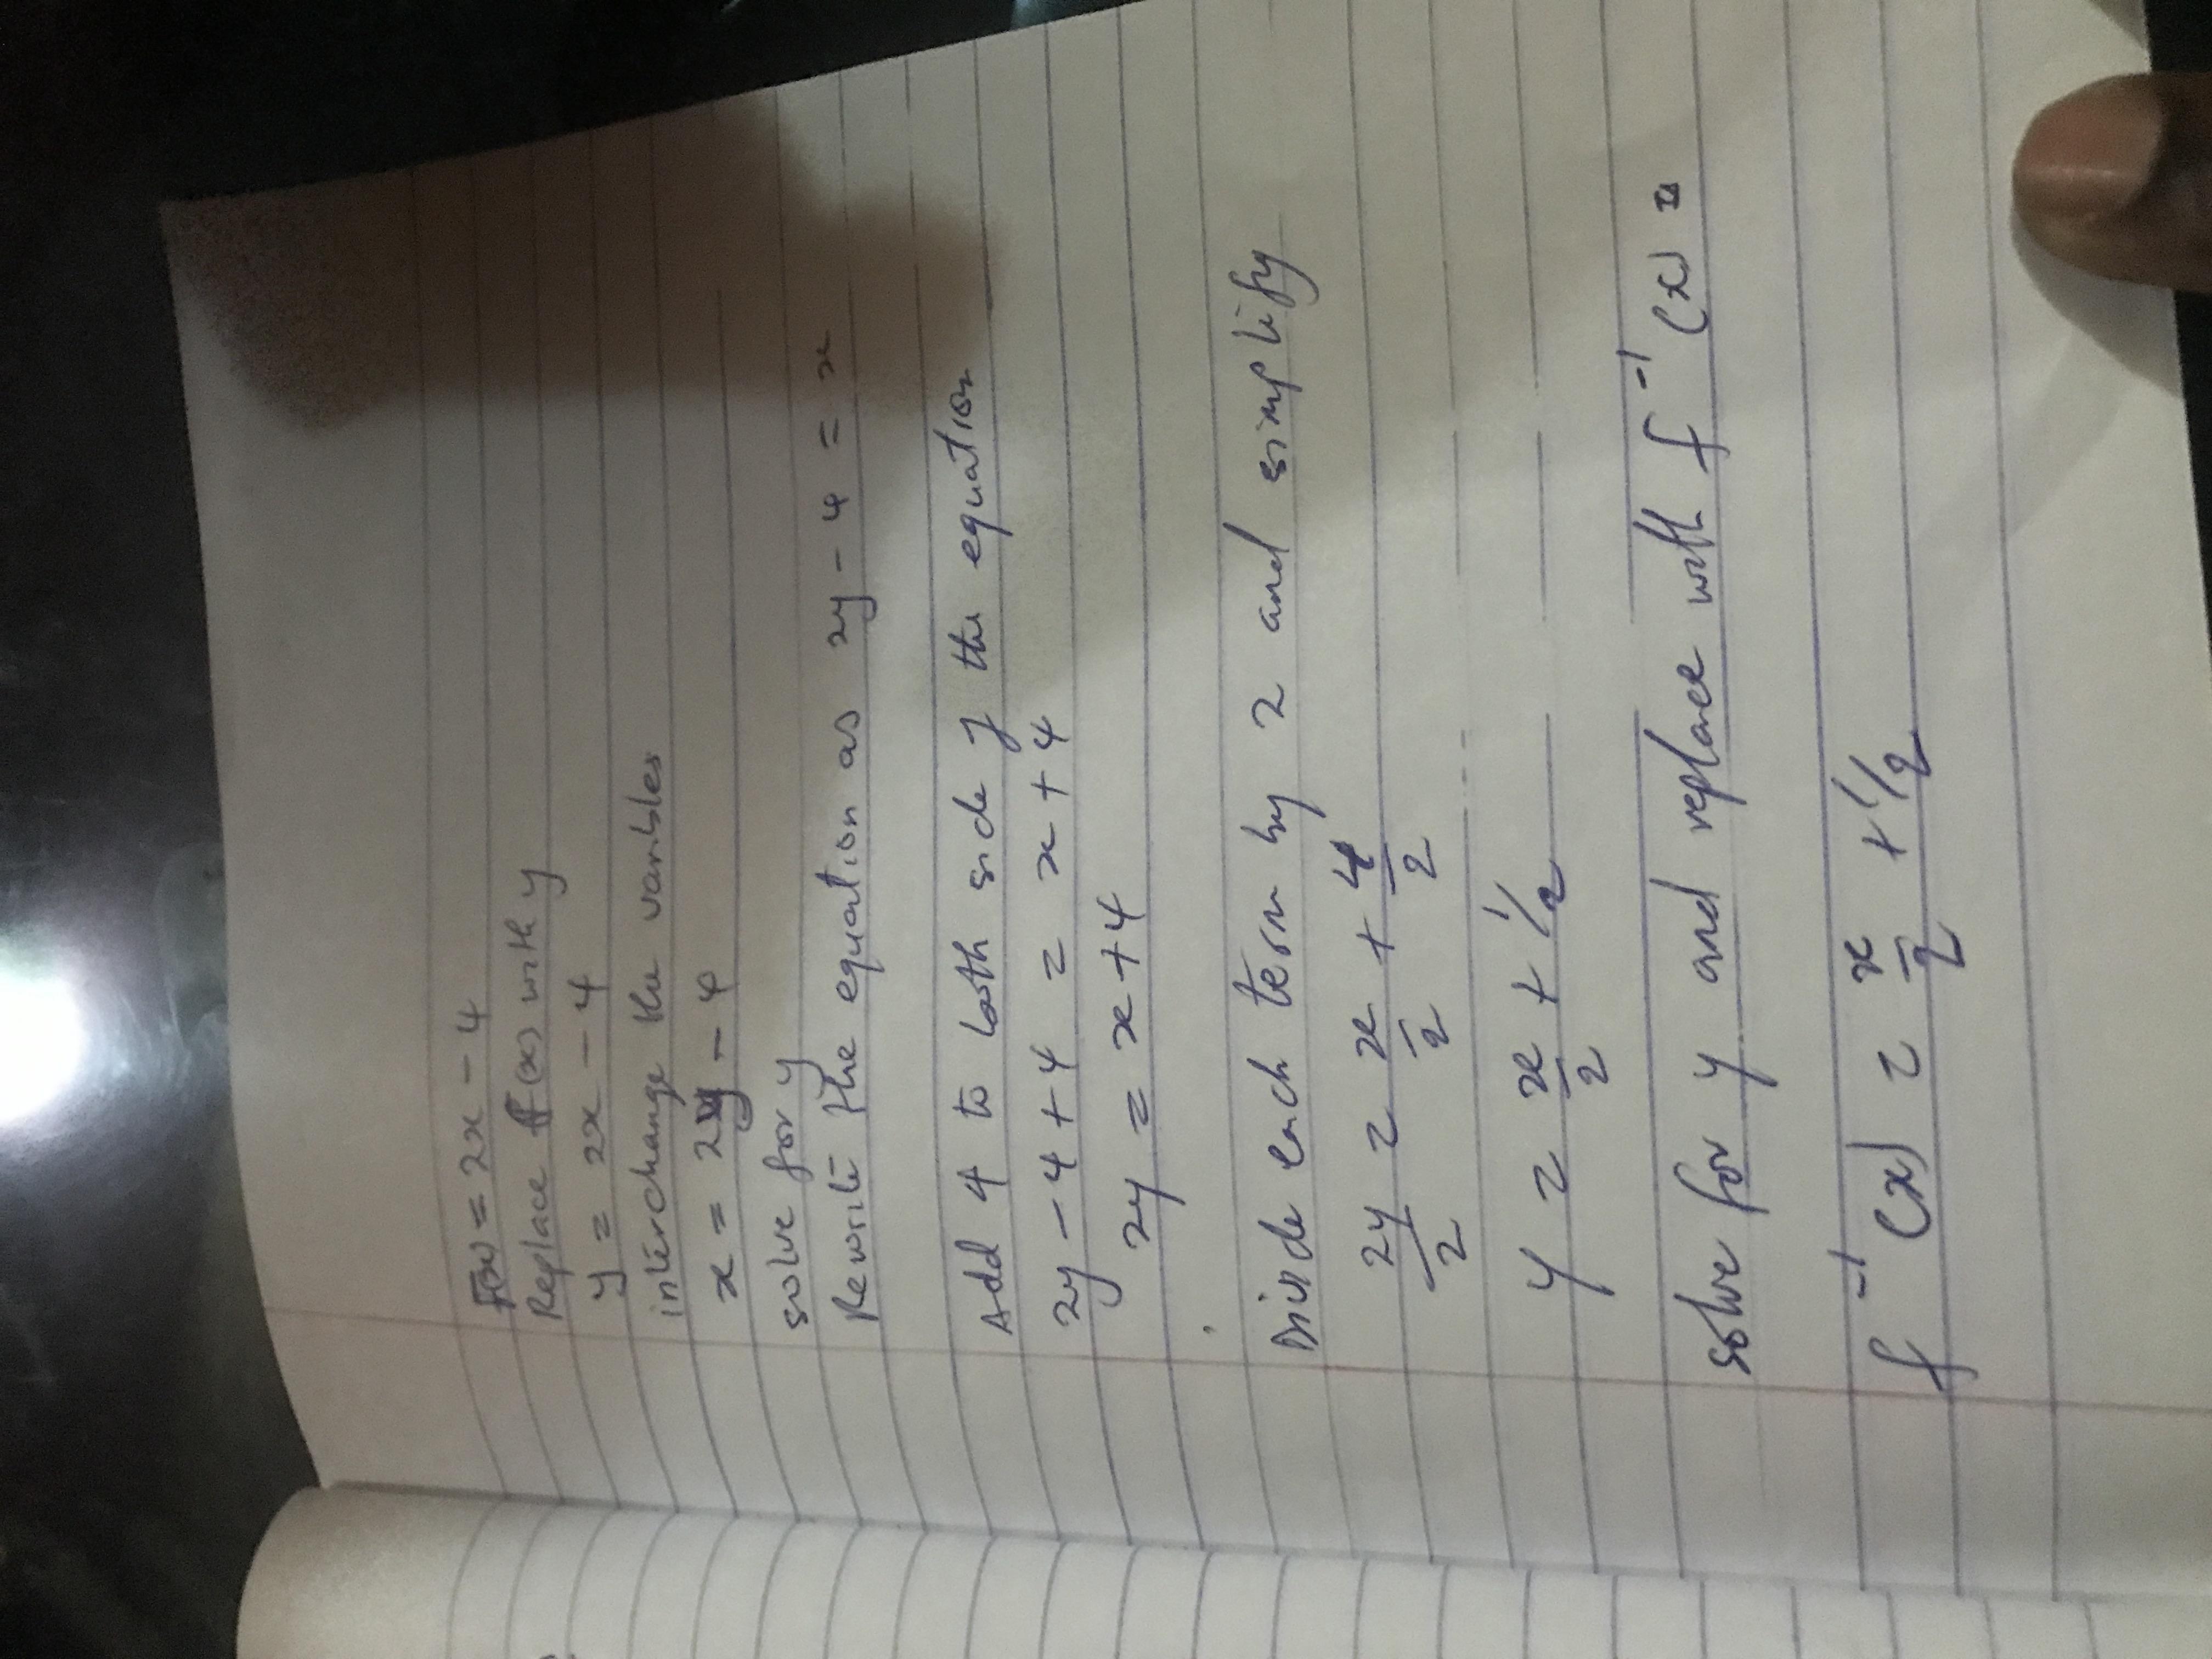 F(x) = 2x - 4
Replace f(x) with y
y = 2x - 4
interchange the varibles
x = 2y - 4
solve for y
Rewrite the equation as 2y - 4 = x
Add 4 to both side of the equation
2y - 4 + 4 = x + 4
2y = x + 4
Divide each term by 2 and simplify
2y/2 = x/2 + 4/2
y = x/2 + 1/2
solve for y and replace with f⁻¹(x) =
f⁻¹(x) = x/2 + 1/2